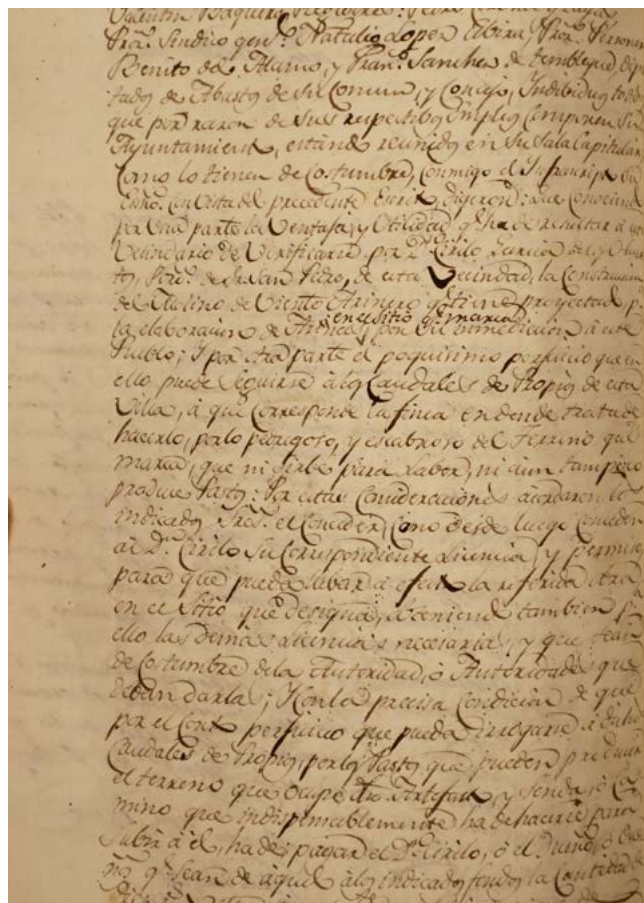 Valentin
Pror. Sindico genl. Natalio Lopez Elvira, Pror. Personero
Benito del Alamo, y Franco. Sanchez de tembleque, Dipu
tados de Abastos de su Comun, y Concejo, Individuos todos
que por razon de sus respectibos empleos componen su
Ayuntamiento, estando reunidos en su sala Capitular
como lo tienen de costumbre, conmigo el Infrascripto su
Esno. con vista del precedente Escrito, digeron: Que conociendo
por una parte la Ventaja, y Utilidad qe. ha de resultar à este
Vecindario de Verificarse por Dn. Cirilo
de San Pedro, de esta Vecindad, la Construccion
del Molino de Viento Arinero qe. tiene proyectado, pa.
la elaboracion de Arinas, en el sitio qe. marca por inmediacion à este
Pueblo; Y por otra parte el poquisimo perjuicio que en
ello puede seguirse à los Caudales de Propios de esta
Villa, à que corresponde la finca en donde trata de
hacerlo, por lo pedragoso, y escabroso del terreno que
marca, que ni sirbe para Labor, ni aun tampoco
produce Pastos: Por estas consideraciones acordaron los
indicados Sres. el Conceder, como desde luego conceden
al Dn. Cirilo su correspondiente Licencia, y permiso
para que pueda llebar à efecto la referida obra
en el sitio que designa, obteniendo tambien pa.
ello las demas Licencias necesarias, y que sean
de costumbre de la Autoridad, ò Autoridades que
deban darla; Y con la precisa condicion de que
por el corto perjuicio que pueda irrogarse à dhos.
Caudales de Propios, por los Pastos que pueden producir
el terreno que ocupe dho. Artefacto, y senda, ò ca
mino que indispensablemente ha de hacerse para
subir à èl, ha de pagar el Dn. Cirilo, ò el Dueño, ò Due
ños qe. sean de aquel à los indicados fondos la Cantidad